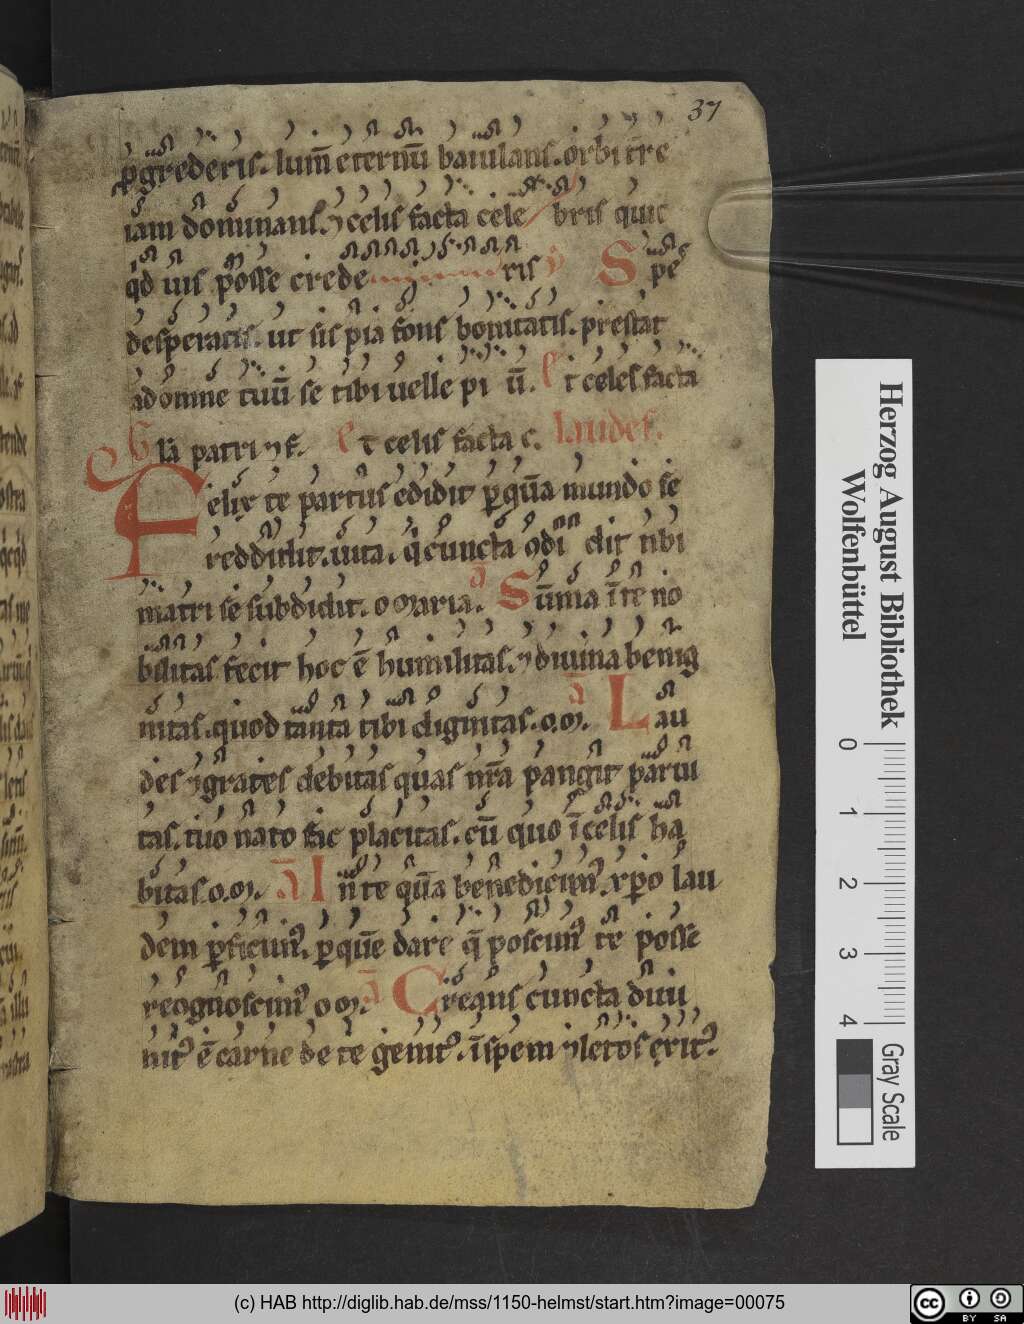 37
ꝑgrederis. lum̄ eternū baiulans. orbi tr̄e
iam dominans. ⁊ celis facta celebris quic
qd uis posse crederis ℣ Spe
desperatis. ut sis pia fons bonitatis. prestat
adomne tuū se tibi uelle pi ū. Et celes facta
Gla patri ⁊ f. Et celis facta c. Laudes.
Felix te partus edidit ꝑ quā mundo se
reddidit. uita. q̄ cuncta ɔdidit tibi
matri se subdidit. o maria. a Sūma ī te no
bilitas fecit hoc ē humilitas. ⁊ diuina benig
nitas. quod tanta tibi dignitas. o.m. a Lau
des ⁊ grates debitas quas nr̄a pangit paruı
tas. tuo nato fac placitas. cū quo ī celis ha
bitas. o.m. a In te quā benedicim᷒. xp̄o lau
dem ꝑficim᷒. ꝑ quē dare q̄ poscim᷒ te posse
reognoscim᷒ o m. a Creans cuncta diui
nit᷒ ē carne de te genit᷒. ī spem ⁊ letos exit᷒.
Herzog August Bibliothek
Wolfenbüttel
0 1 2 3 4
Gray Scale
(c) HAB http://diglib.hab.de/mss/1150-helmst/start.htm?image=00075
cc BY SA